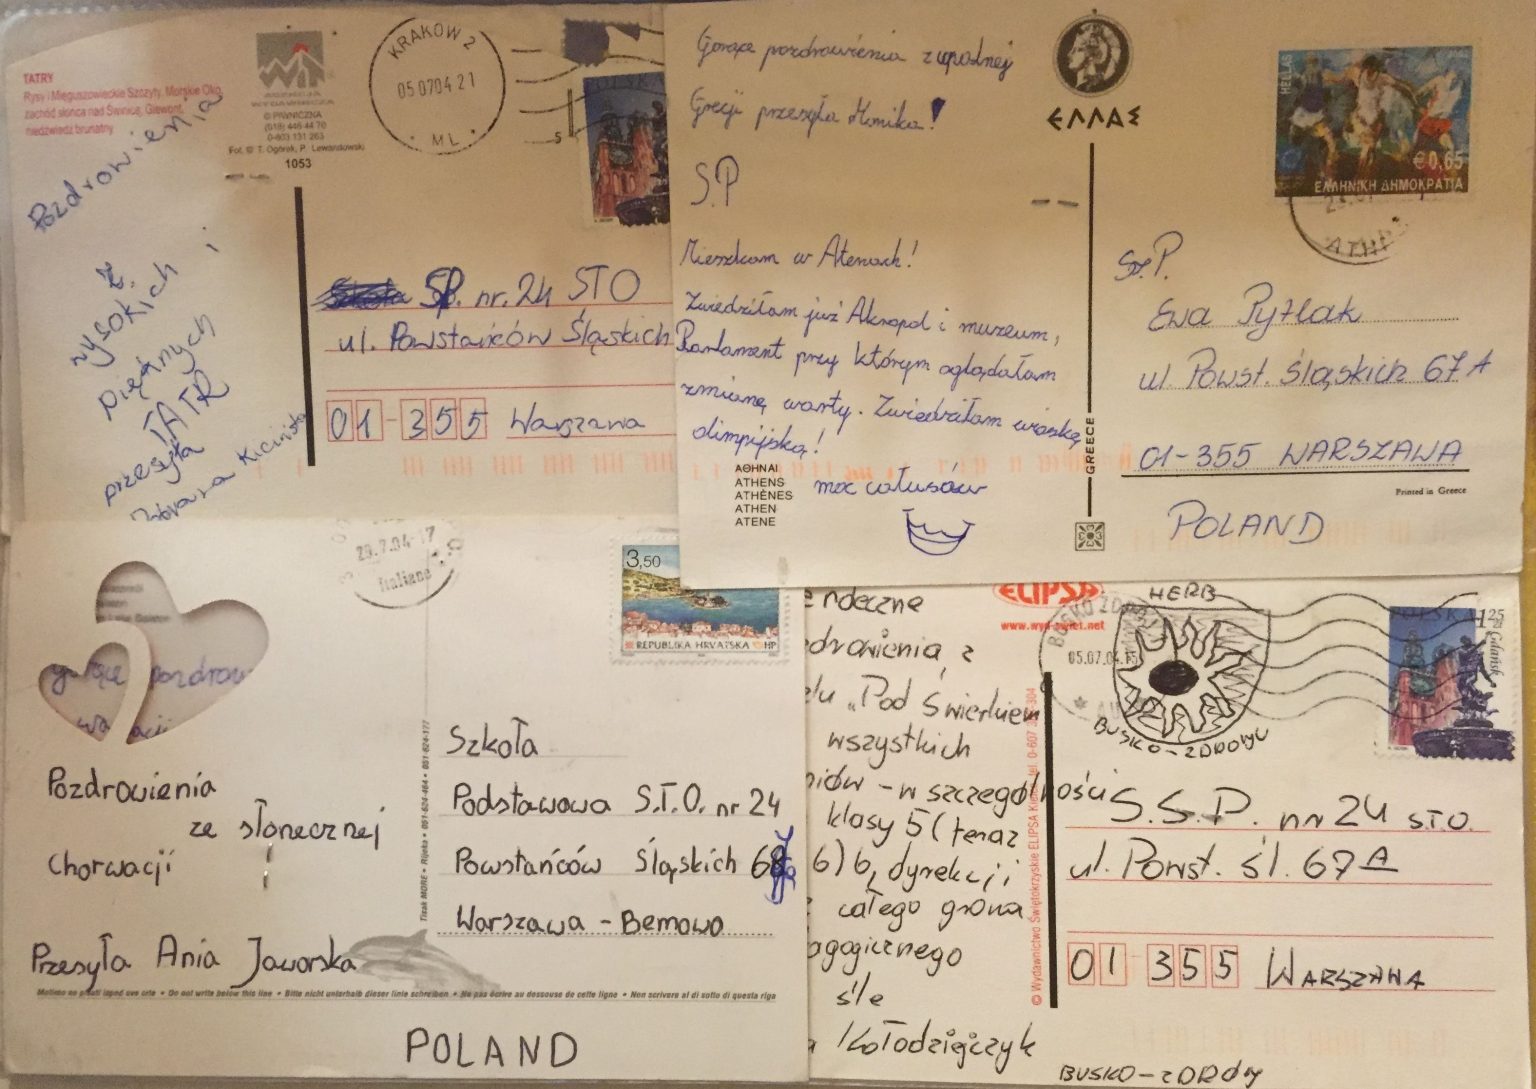 TATRY
Rysy i Mięguszowieckie Szczyty, Morskie Oko,
zachód słońca nad Świnicą, Giewont,
niedźwiedź brunatny
WiT
AGENCJA
WYDAWNICZA
© PIWNICZNA
(018) 446 44 70
0-603 131 263
Fot. © T. Ogórek, P. Lewandowski
1053
KRAKÓW 2
05 0704 21
ML
POLSKA
Pozdrowienia
z
wysokich i
pięknych
TATR
przesyła
Kicińska
SP. nr. 24 STO
ul. Powstańców Śląskich
01-355 Warszawa
Gorące pozdrowienia z upalnej
Grecji przesyła Monika!
S.P
Mieszkam w Atenach!
Zwiedziłam już Akropol i muzeum,
Parlament przy którym oglądałam
zmianę warty. Zwiedziłam wioskę
olimpijską!
moc całusów
ΑΘΗΝΑΙ
ATHENS
ATHÈNES
ATHEN
ATENE
ΕΛΛΑΣ
GREECE
HELLAS
€ 0,65
ΕΛΛΗΝΙΚΗ ΔΗΜΟΚΡΑΤΙΑ
Sz.P.
Ewa Pytlak
ul. Powst. Śląskich 67A
01-355 WARSZAWA
Printed in Greece
POLAND
29.7.04-17
Italiane
3,50
REPUBLIKA HRVATSKA HP
gorące pozdrow
Pozdrowienia
ze słonecznej
Chorwacji
Przesyła Ania Jaworska
Tisak MORE • Rijeka • 051-624-464 • 051-624-177
Szkoła
Podstawowa S.T.O. nr 24
Powstańców Śląskich
Warszawa - Bemowo
Molimo ne pisati ispod ove crte • Do not write below this line • Bitte nicht unterhalb dieser linie schreiben • Ne pas écrire au dessouse de cette ligne • Non scrivere al di sotto di questa riga
POLAND
erdeczne
zdrowienia z
elu „Pod Świerkiem
wszystkich
niów - w szczególności
klasy 5 (teraz
6) b, dyrekcji
całego grona
agogicznego
śle
a Kołodziejczyk
ELIPSA
www.wyd-swiet.net
© Wydawnictwo Świętokrzyskie ELIPSA
BUSKO ZDRÓJ
05.07.04
HERB
BUSKO-ZDROJU
POLSKA 1,25 zł
Gdańsk
S.S.P. nr 24 STO.
ul. Powst. Śl. 67A
01-355 WARSZAWA
BUSKO-ZDRÓJ